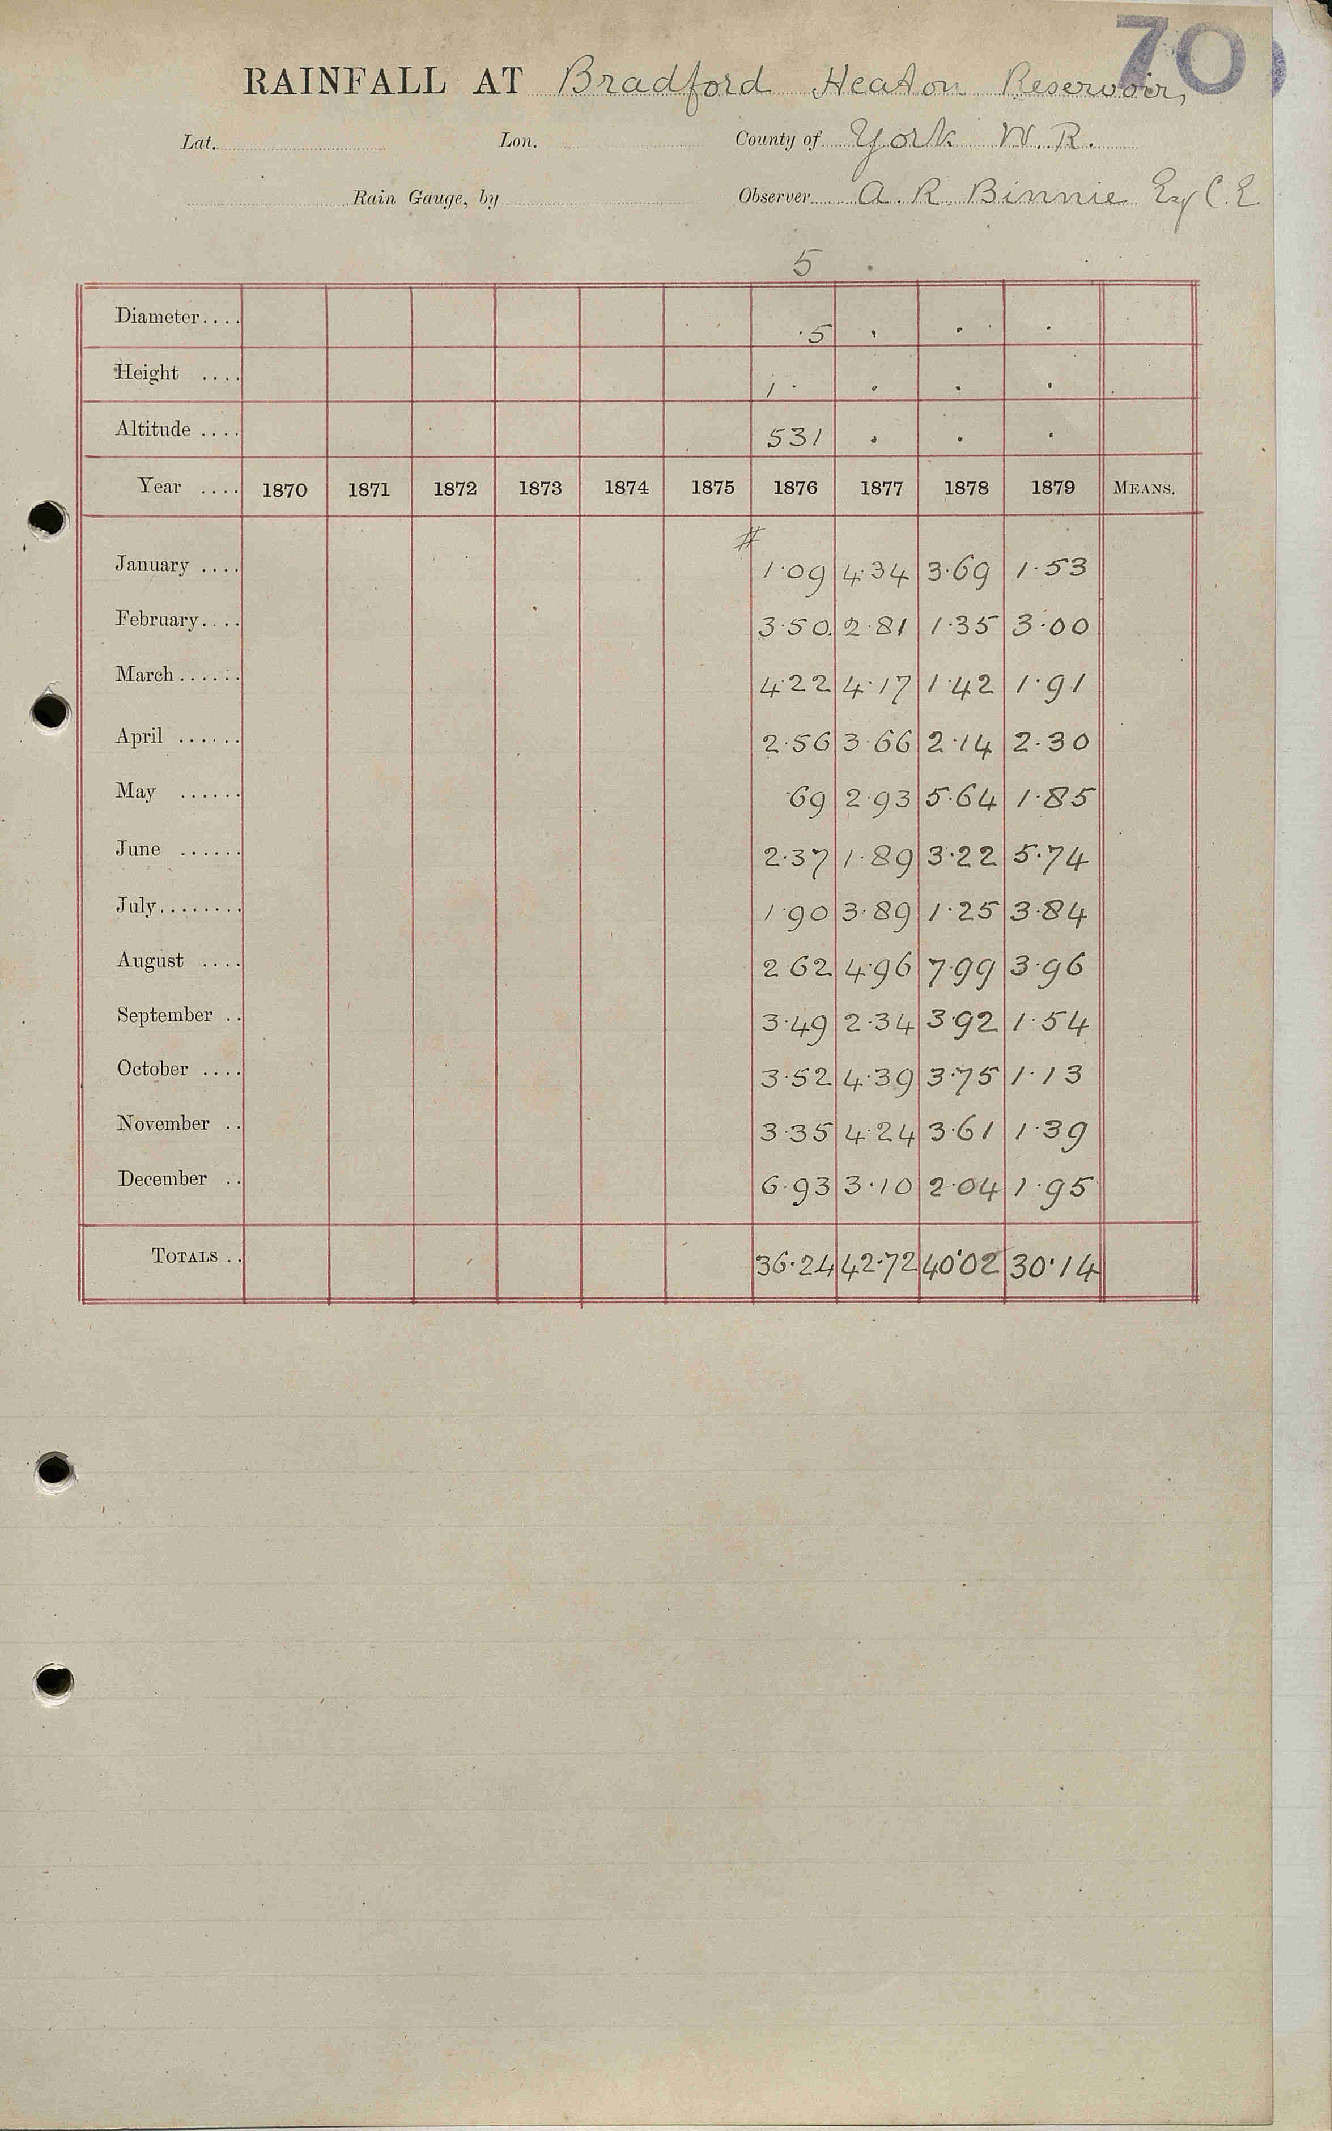 70
RAINFALL AT Bradford Heaton Reservoir,
Lat. Lon. County of York W. R.
Rain Gauge, by Observer A. R. Binnie Esq C. E
5 .
Diameter.... .5 . . .
Height .... 1 . . . .
Altitude .... 531 . . .
Year .... 1870 1871 1872 1873 1874 1875 1876 1877 1878 1879 MEANS.
#
January .... 1.09 4.34 3.69 1.53
February.... 3.50 2.81 1.35 3.00
March...... 4.22 4.17 1.42 1.91
April ...... 2.56 3.66 2.14 2.30
May ...... .69 2.93 5.64 1.85
June ...... 2.37 1.89 3.22 5.74
July........ 1.90 3.89 1.25 3.84
August .... 2.62 4.96 7.99 3.96
September .. 3.49 2.34 3.92 1.54
October .... 3.52 4.39 3.75 1.13
November .. 3.35 4.24 3.61 1.39
December .. 6.93 3.10 2.04 1.95
TOTALS .. 36.24 42.72 40.02 30.14